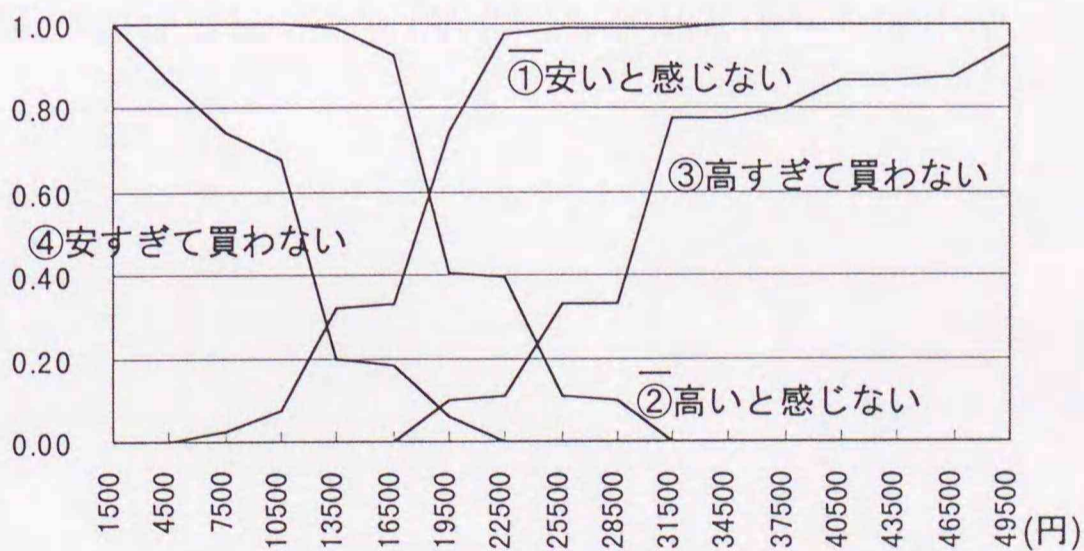 1.00
0.80
0.60
0.40
0.20
0.00
①安いと感じない
③高すぎて買わない
④安すぎて買わない
②高いと感じない
1500
4500
7500
10500
13500
16500
19500
22500
25500
28500
31500
34500
37500
40500
43500
46500
49500
(円)